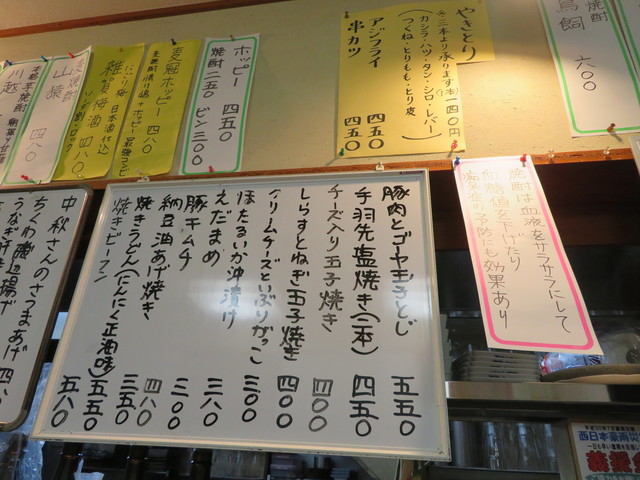 焼酎
鳥飼
六〇〇
やきとり
※二本より承ります(一本)一四〇円
カシラ・ハツ・タン・シロ・レバー
(つくね・とりもも・とり皮
アジフライ 四五〇
串カツ 四五〇
ホッピー 四五〇
焼酎 二五〇 ビン三〇〇
麦冠ホッピー 四八〇
雑賀梅酒 四八〇
にごり梅 日本酒仕込
山猿 四八〇
川越
焼酎は血液をサラサラにして
血糖値を下げたり
予防にも効果あり
豚肉とゴーヤ玉子とじ 五五〇
手羽先塩焼き(二本) 四五〇
チーズ入り玉子焼き 四〇〇
しらすとねぎ玉子焼き 四〇〇
クリームチーズといぶりがっこ 三〇〇
ほたるいか沖漬け 三八〇
えだまめ 三〇〇
豚キムチ 四八〇
納豆油あげ焼き 三五〇
焼きうどん(にんにく正油味) 五五〇
焼きピーマン 五八〇
中秋さんのさまあげ
ちくわ磯辺揚げ 四八
うなぎ肝
西日本豪雨災